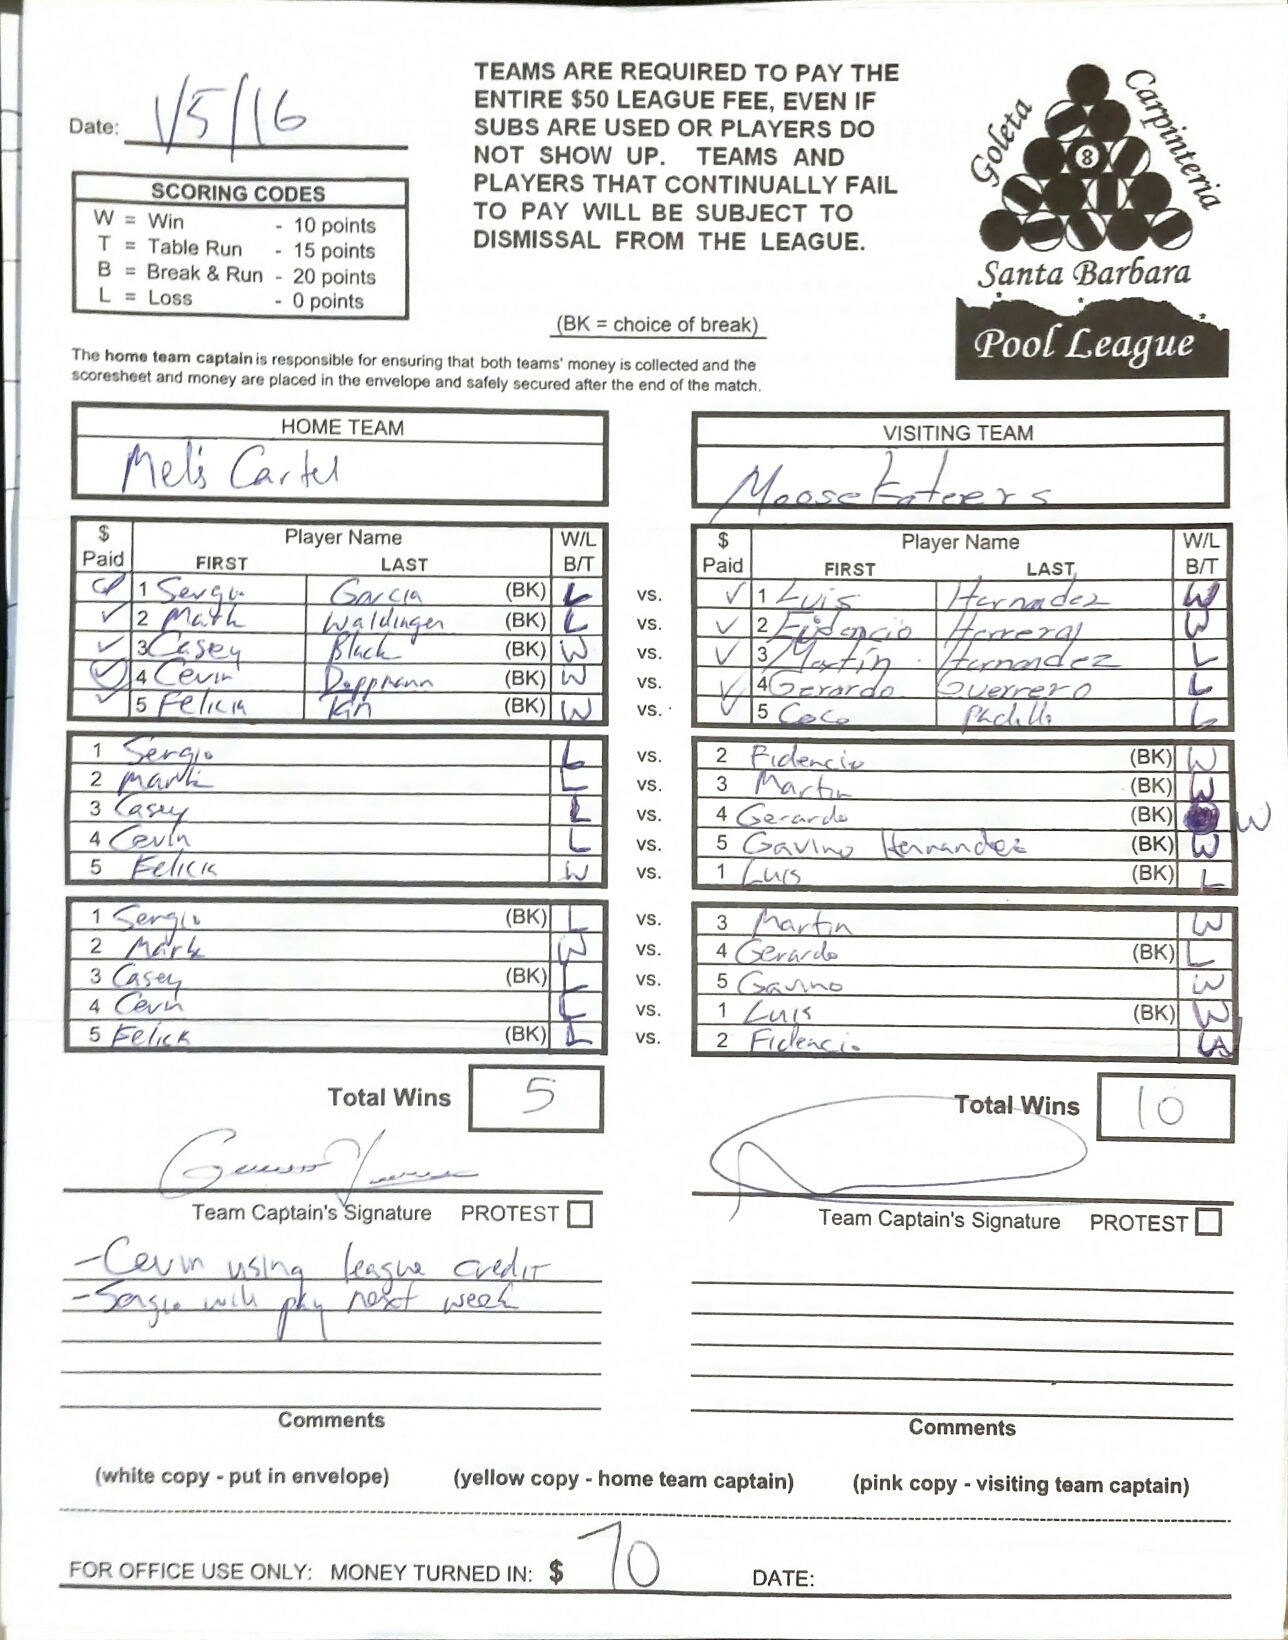 Date: 1/5/16
TEAMS ARE REQUIRED TO PAY THE
ENTIRE $50 LEAGUE FEE, EVEN IF
SUBS ARE USED OR PLAYERS DO
NOT SHOW UP. TEAMS AND
PLAYERS THAT CONTINUALLY FAIL
TO PAY WILL BE SUBJECT TO
DISMISSAL FROM THE LEAGUE.
Goleta
Carpinteria
8
Santa Barbara
Pool League
SCORING CODES
W = Win - 10 points
T = Table Run - 15 points
B = Break & Run - 20 points
L = Loss - 0 points
(BK = choice of break)
The home team captain is responsible for ensuring that both teams' money is collected and the
scoresheet and money are placed in the envelope and safely secured after the end of the match.
HOME TEAM
Mel's Cartel
VISITING TEAM
Moose
$ Paid Player Name FIRST LAST W/L B/T
$ Paid Player Name FIRST LAST W/L B/T
1 Sergio Garcia (BK) L vs. 1 Luis Hernadez W
2 Mark Waldinger (BK) L vs. 2 Fidencio Herrera W
3 Casey Black (BK) W vs. 3 Martin Hernandez L
4 Cevin Doppmann (BK) W vs. 4 Gerardo Guerrero L
5 Felicia (BK) W vs. 5 Coco Padilla L
1 Sergio L vs. 2 Fidencio (BK) W
2 Mark L vs. 3 Martin (BK) W
3 Casey L vs. 4 Gerardo (BK) W
4 Cevin L vs. 5 Gavino Hernandez (BK) W
5 Felicia W vs. 1 Luis (BK) L
1 Sergio (BK) L vs. 3 Martin W
2 Mark W vs. 4 Gerardo (BK) L
3 Casey (BK) L vs. 5 Gavino W
4 Cevin L vs. 1 Luis (BK) W
5 Felicia (BK) L vs. 2 Fidencio W
Total Wins 5
Total Wins 10
Team Captain's Signature PROTEST
Team Captain's Signature PROTEST
-Cevin using league credit
-Sergio will pay next week
Comments
Comments
(white copy - put in envelope) (yellow copy - home team captain) (pink copy - visiting team captain)
FOR OFFICE USE ONLY: MONEY TURNED IN: $ 70 DATE: